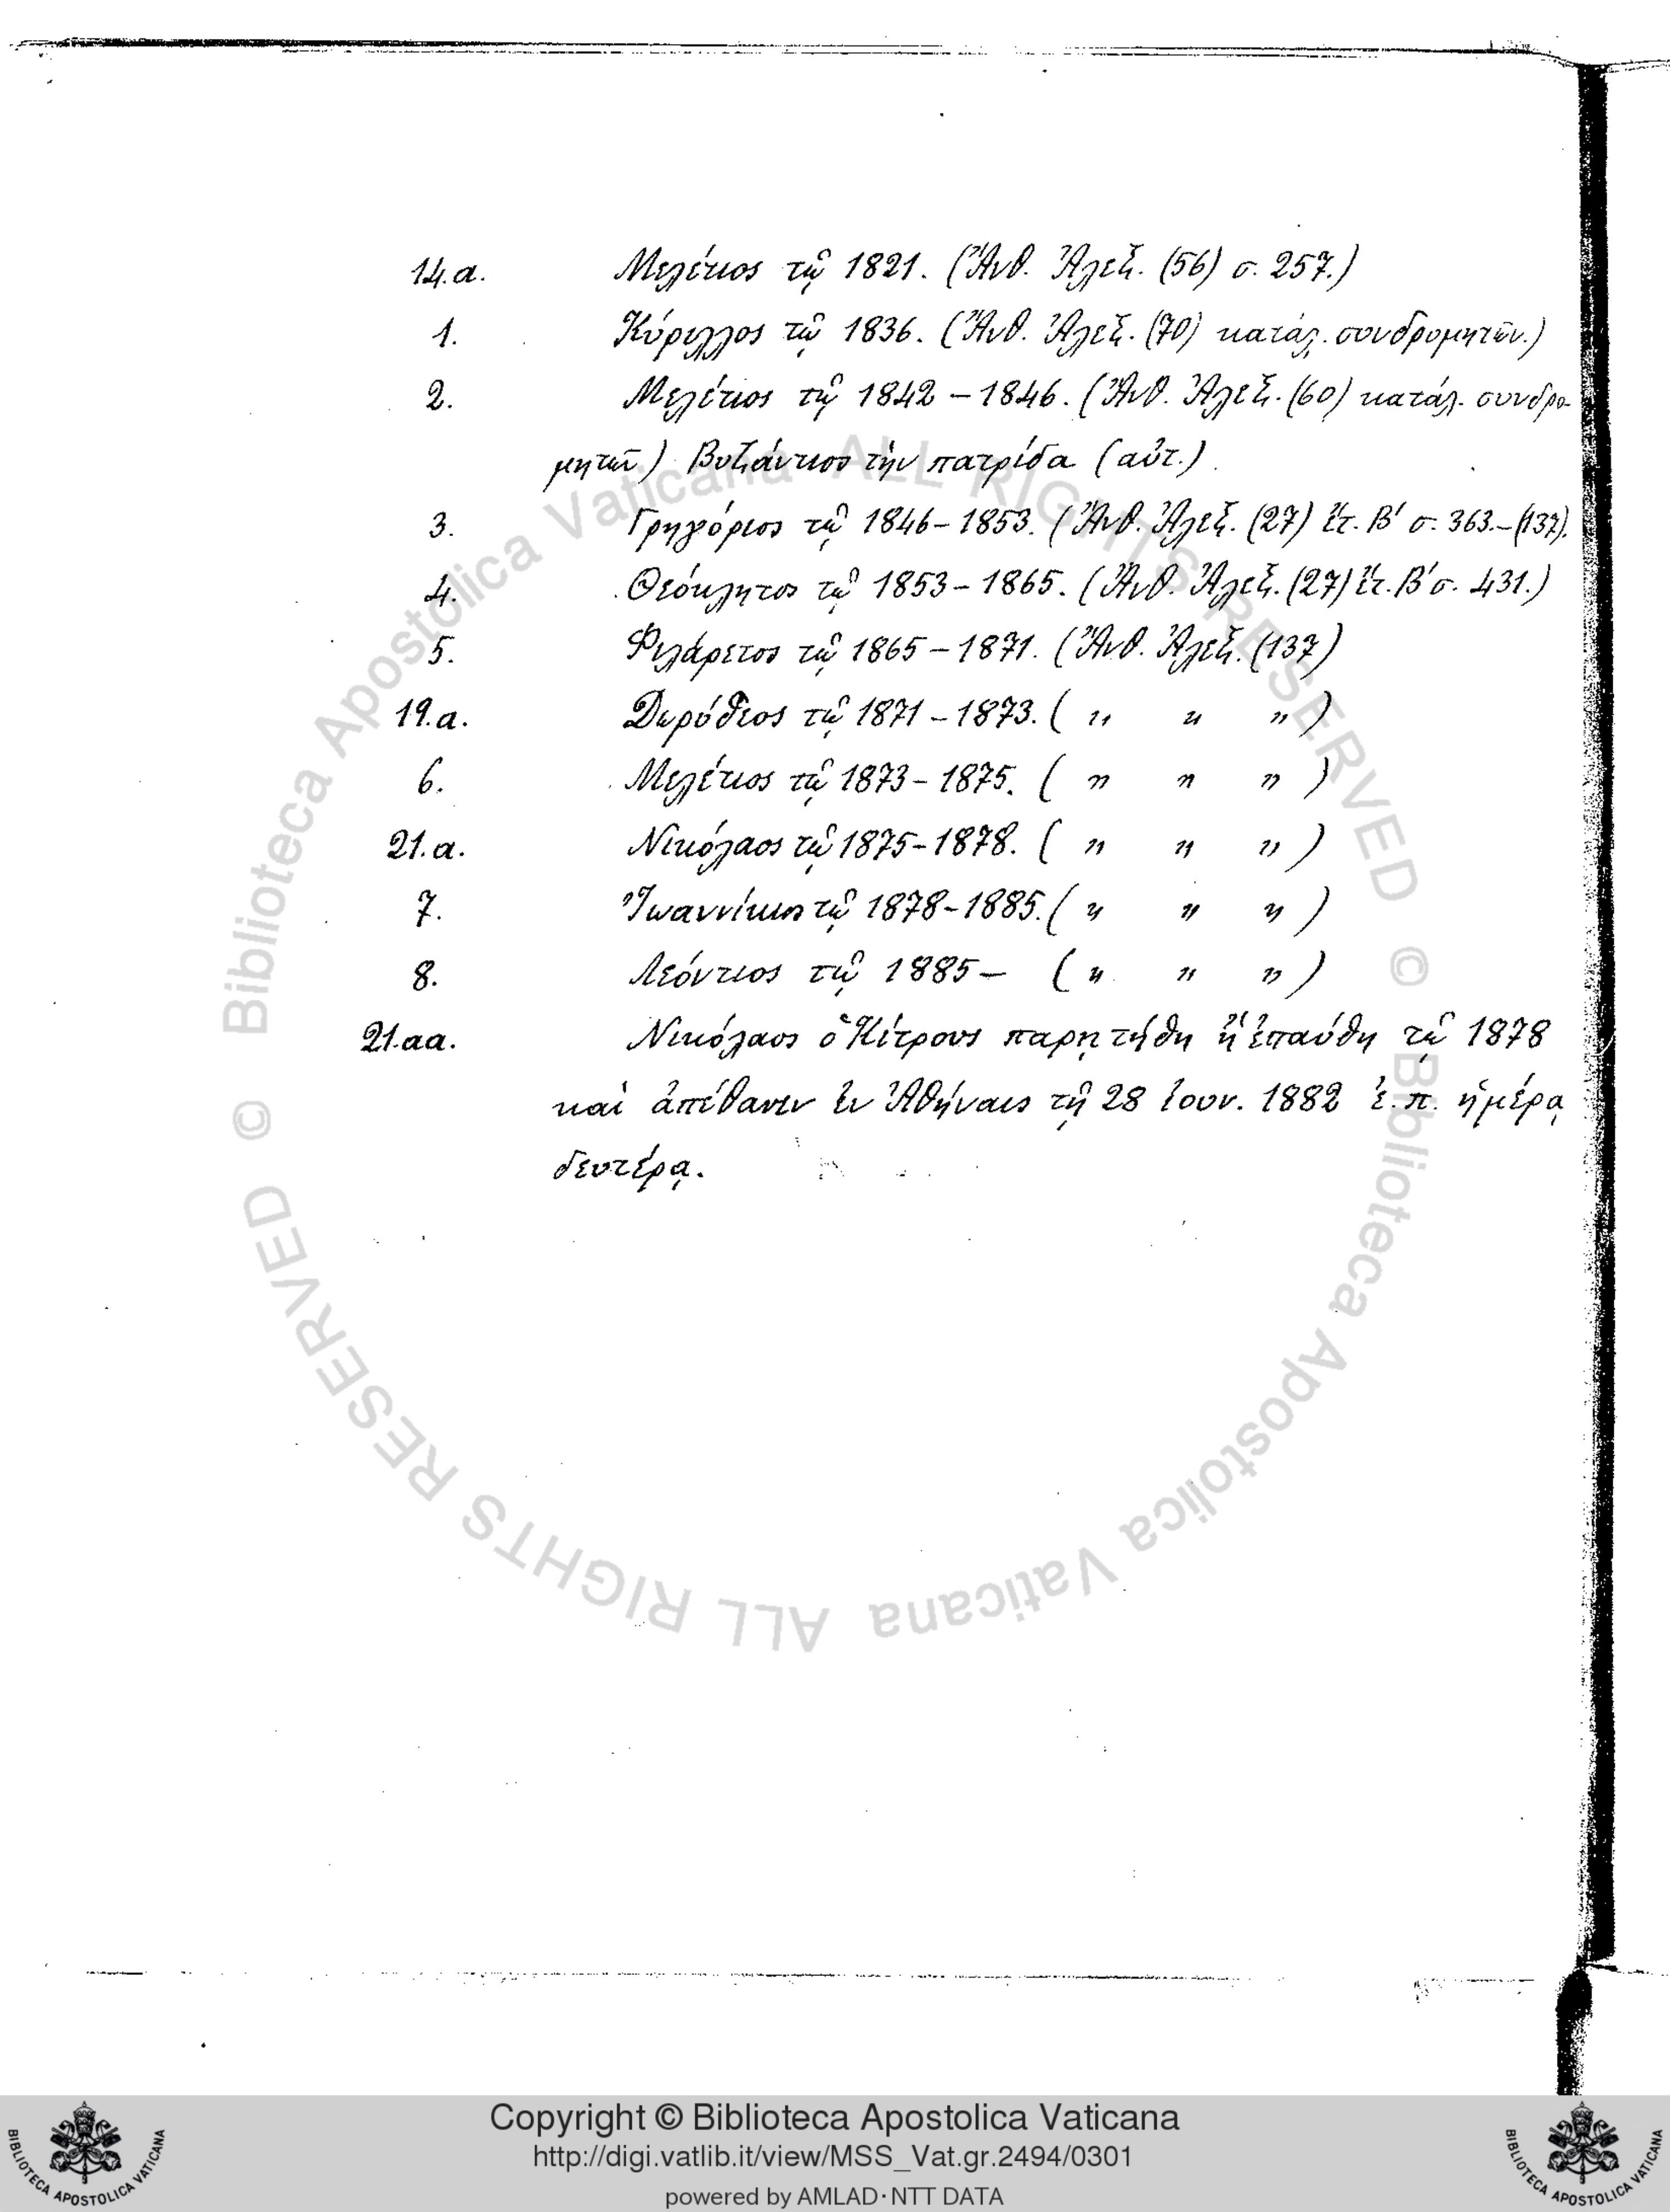 14.α. Μελέτιος τῷ 1821. (Ἄνθ. Ἀλεξ. (56) σ. 257.)
1. Κύριλλος τῷ 1836. (Ἄνθ. Ἀλεξ. (70) κατάλ. συνδρομητῶν.)
2. Μελέτιος τῷ 1842 – 1846. (Ἄνθ. Ἀλεξ. (60) κατάλ. συνδρο-
μητῶν) Βυζάντιος τὴν πατρίδα (αὐτ.).
3. Γρηγόριος τῷ 1846 – 1853. (Ἄνθ. Ἀλεξ. (27) ἔτ. Β′ σ. 363. – (137).
4. Θεόκλητος τῷ 1853 – 1865. (Ἄνθ. Ἀλεξ. (27) ἔτ. Β′ σ. 431.)
5. Φιλάρετος τῷ 1865 – 1871. (Ἄνθ. Ἀλεξ. (137)
19.α. Δωρόθεος τῷ 1871 – 1873. ( „ „ „ )
6. Μελέτιος τῷ 1873 – 1875. ( „ „ „ )
21.α. Νικόλαος τῷ 1875 – 1878. ( „ „ „ )
7. Ἰωαννίκιος τῷ 1878 – 1885. ( „ „ „ )
8. Λεόντιος τῷ 1885 – ( „ „ „ )
21.αα. Νικόλαος ὁ Κίτρους παρῃτήθη ἢ ἐπαύθη τῷ 1878
καὶ ἀπέθανεν ἐν Ἀθήναις τῇ 28 Ἰουν. 1882 ἐ. π. ἡμέρᾳ
δευτέρᾳ.
© Biblioteca Apostolica Vaticana ALL RIGHTS RESERVED
© Biblioteca Apostolica Vaticana ALL RIGHTS RESERVED
BIBLIOTECA APOSTOLICA VATICANA
Copyright © Biblioteca Apostolica Vaticana
http://digi.vatlib.it/view/MSS_Vat.gr.2494/0301
powered by AMLAD·NTT DATA
BIBLIOTECA APOSTOLICA VATICANA